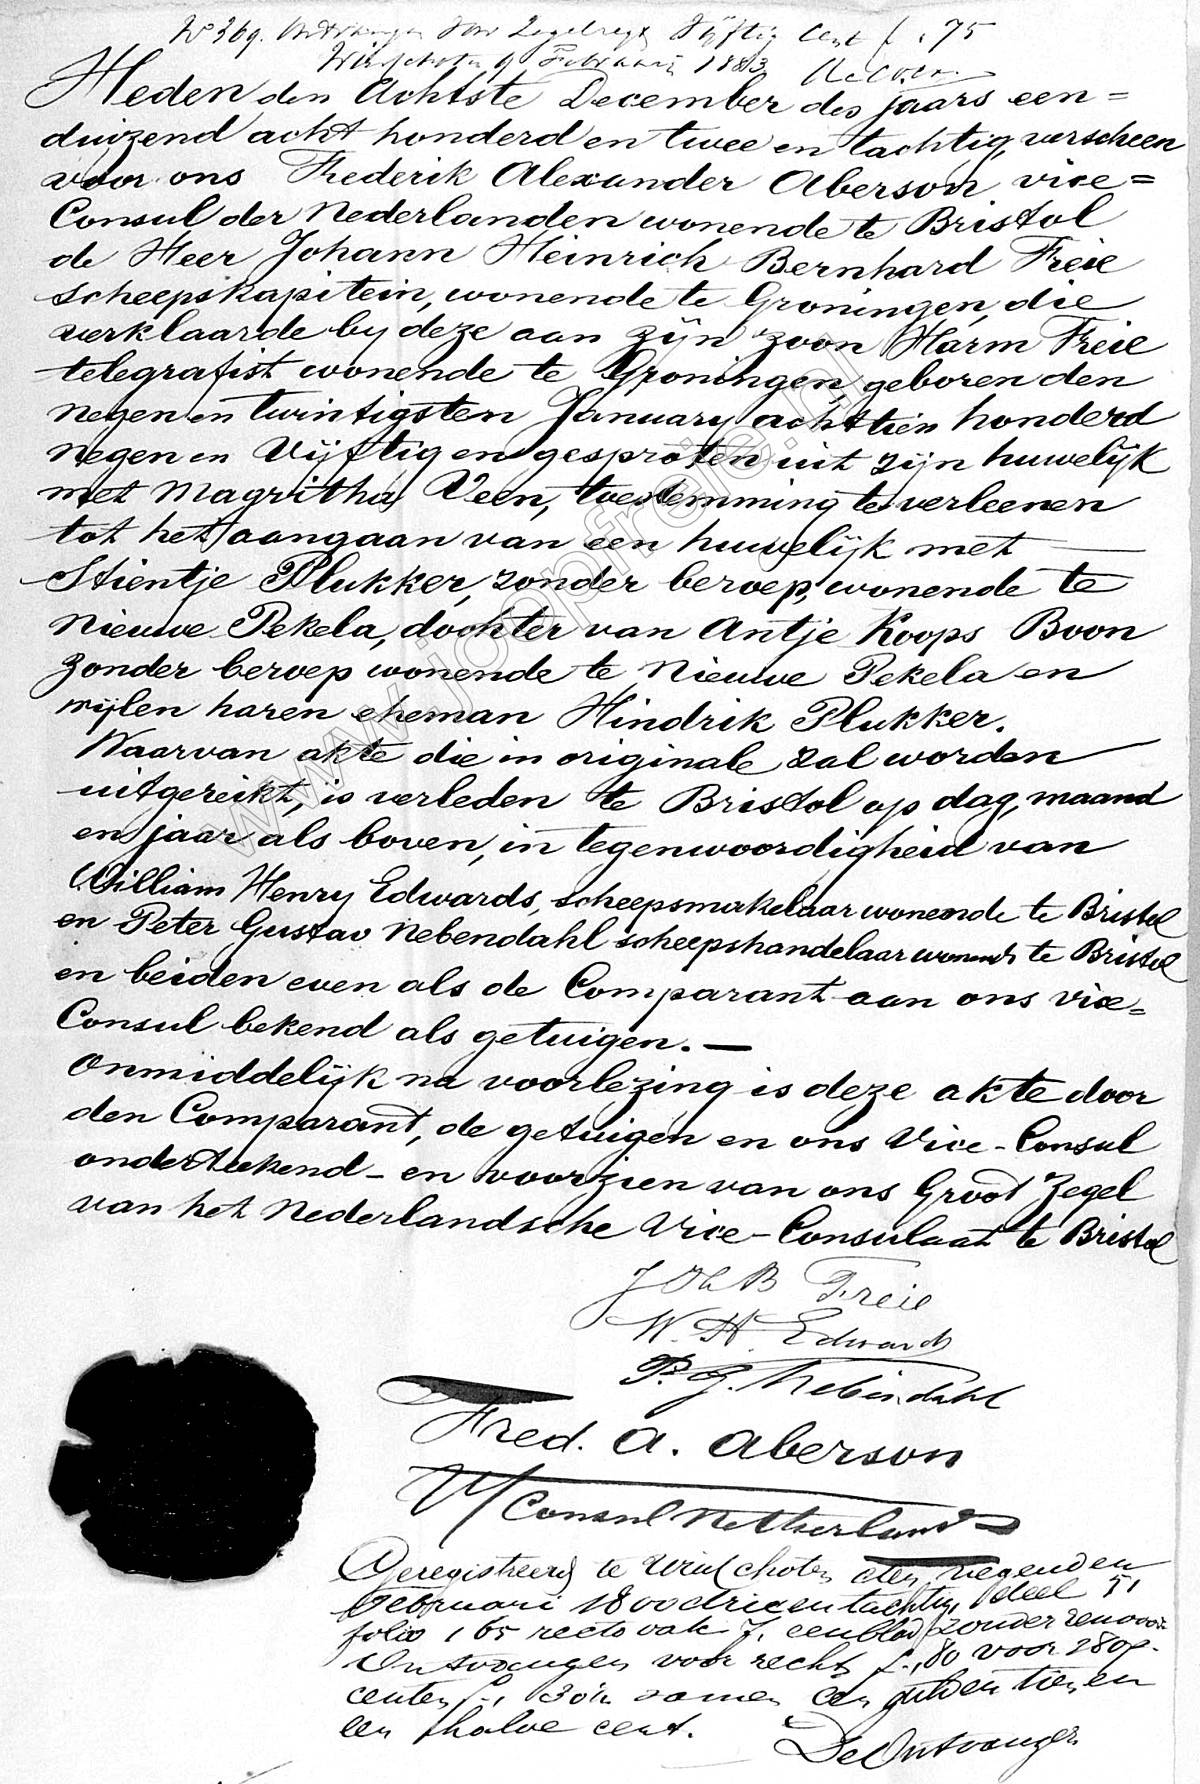 No 369. Ontvangen voor Zegelregt Vijftig Cent f ,75
Winschoten 9 Februarij 1883
Heden den Achtste December des jaars een=
duizend acht honderd en twee en tachtig, verscheen
voor ons Frederik Alexander Aberson vice=
Consul der Nederlanden wonende te Bristol
de Heer Johann Heinrich Bernhard Freie
scheepskapitein, wonende te Groningen, die
verklaarde by deze aan zijn zoon Harm Freie
telegrafist wonende te Groningen, geboren den
negen en twintigsten January achttien honderd
negen en Vijftig en gesproten uit zijn huwelijk
met Magritha Veen, toestemming te verleenen
tot het aangaan van een huwelijk met —
Stientje Plukker, zonder beroep, wonende te
Nieuwe Pekela, dochter van Antje Koops Boon
zonder beroep wonende te Nieuwe Pekela en
wijlen haren eheman Hindrik Plukker.
Waarvan akte die in originale zal worden
uitgereikt, is verleden te Bristol op dag, maand
en jaar als boven, in tegenwoordigheid van
William Henry Edwards, scheepsmakelaar wonende te Bristol
en Peter Gustav Nebendahl scheepshandelaar wonende te Bristol
en beiden even als de Comparant aan ons vice=
Consul bekend als getuigen. —
Onmiddelijk na voorlezing is deze akte door
den Comparant, de getuigen en ons Vice-Consul
onderteekend - en voorzien van ons Groot Zegel
van het Nederlandsche Vice-Consulaat te Bristol
J H B Freie
W. H. Edwards
P. G. Nebendahl
Fred. A. Aberson
V/Consul Netherlands
Geregistreerd te Winschoten den negenden
Februari 1800 drieentachtig, deel 51
folio 165 recto vak 7, een blad zonder renvooi.
Ontvangen voor recht f ,80 voor 38 op-
centen f , 30½ samen een gulden tien en
een halve cent.
De Ontvanger
www.jopfreie.nl